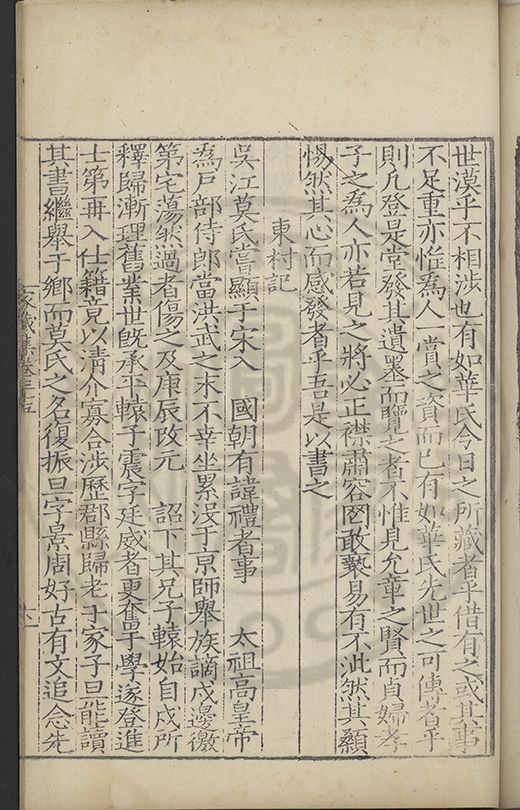 世漠乎不相涉也有如華氏今日之所藏者乎借有之或其事
不足重亦惟為人一賞之資而已有如華氏先世之可傳者乎
則凡登是堂發其遺墨而覽之者不惟見允章之賢而貞婦孝
子之為人亦若見之將必正襟肅容罔敢褻易有不泚然其顙
惕然其心而感發者乎吾是以書之
東村記
吳江莫氏嘗顯于宋入 國朝有諱禮者事 太祖高皇帝
為戶部侍郎當洪武之末不幸坐累沒于京師舉族謫戍邊徼
第宅蕩然過者傷之及庚辰改元 詔下其兄子轅始自戍所
釋歸漸理舊業世既承平轅子震字廷威者更奮于學遂登進
士第再入仕籍竟以清介寡合涉歷郡縣歸老于家子旦能讀
其書繼舉于鄉而莫氏之名復振旦字景周好古有文追念先
家藏集卷三十五